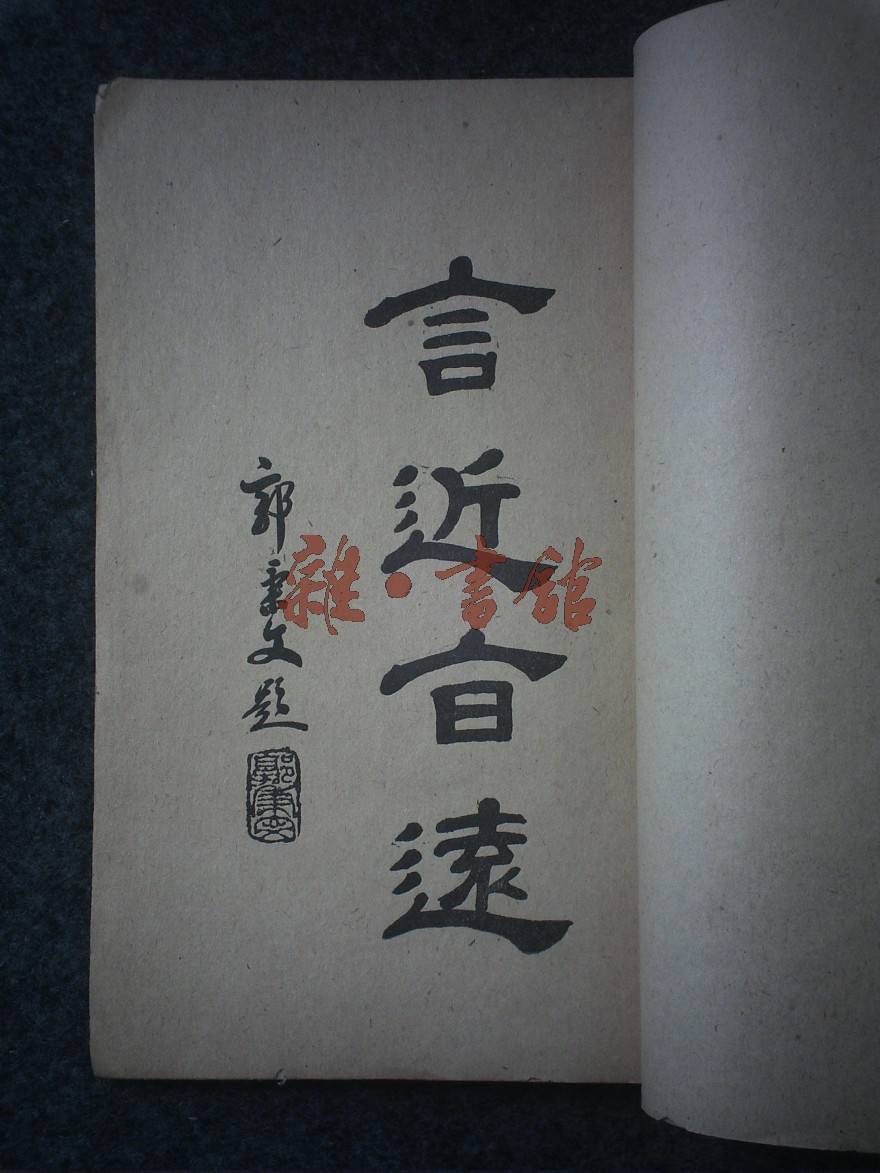 言近旨遠
郭秉文題
雜·書館